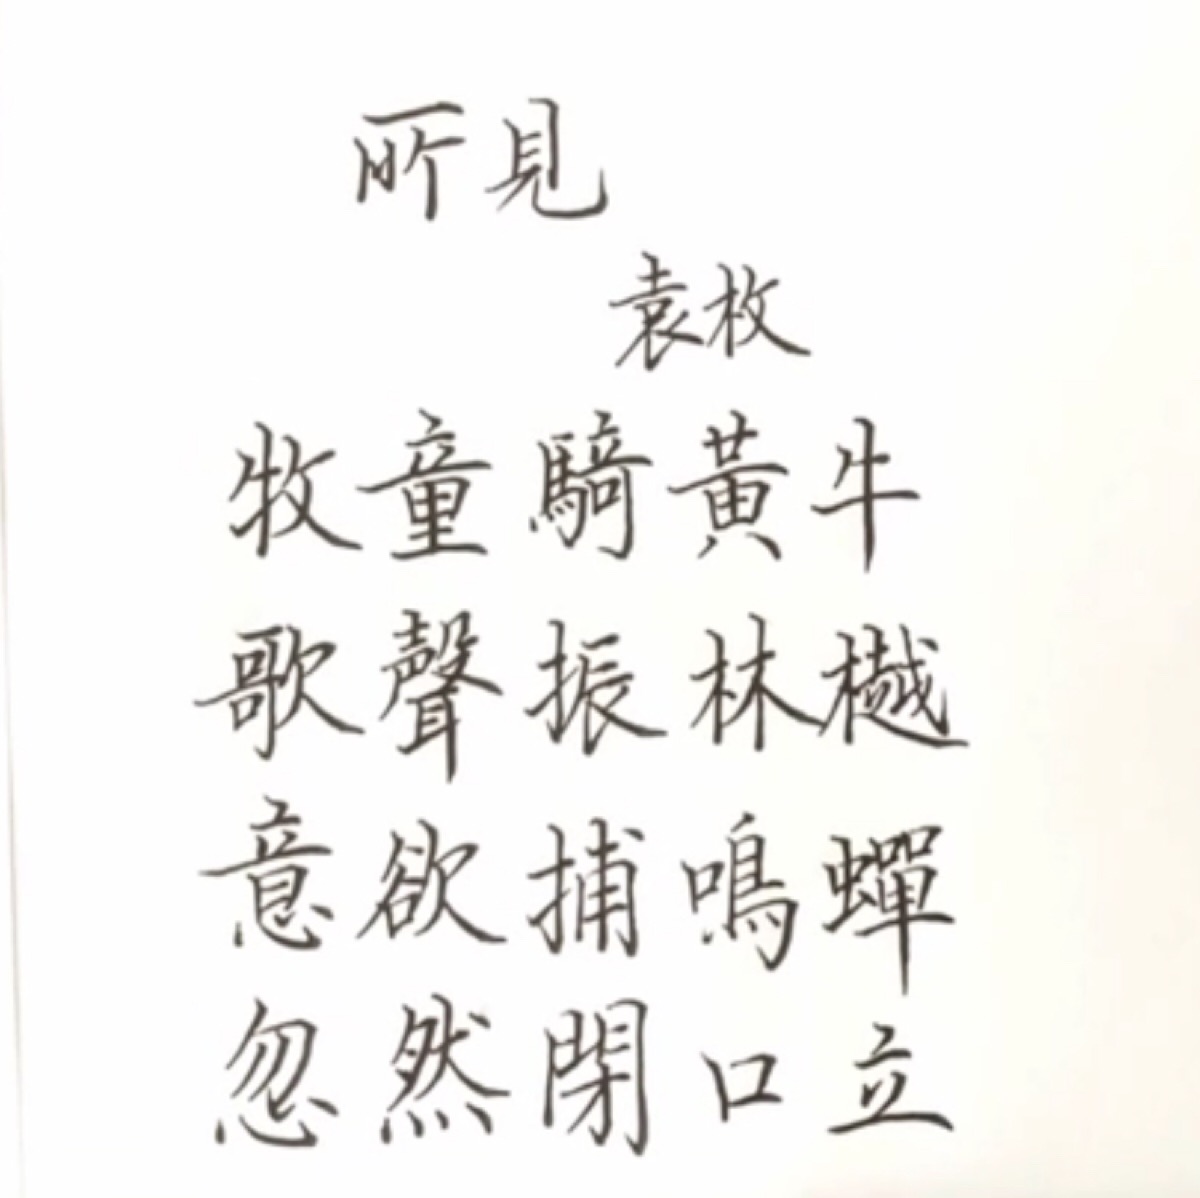 所見
袁枚
牧童騎黃牛
歌聲振林樾
意欲捕鳴蟬
忽然閉口立